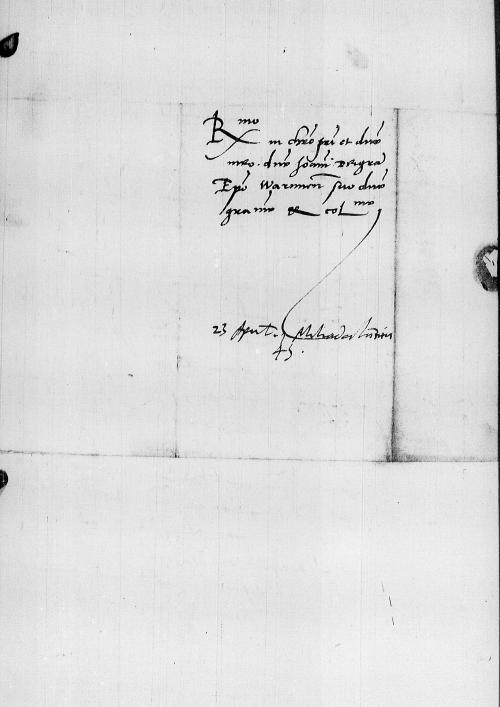 Rmo
in chrō pri et dnō
meo dnō Joanni Dei gra
Epō Warmien̄ suo dnō
gratmo & colmo
23 April.
45.